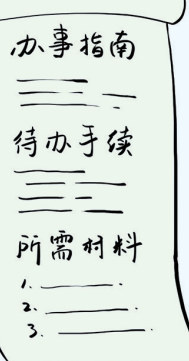 办事指南
待办手续
所需材料
1.
2.
3.